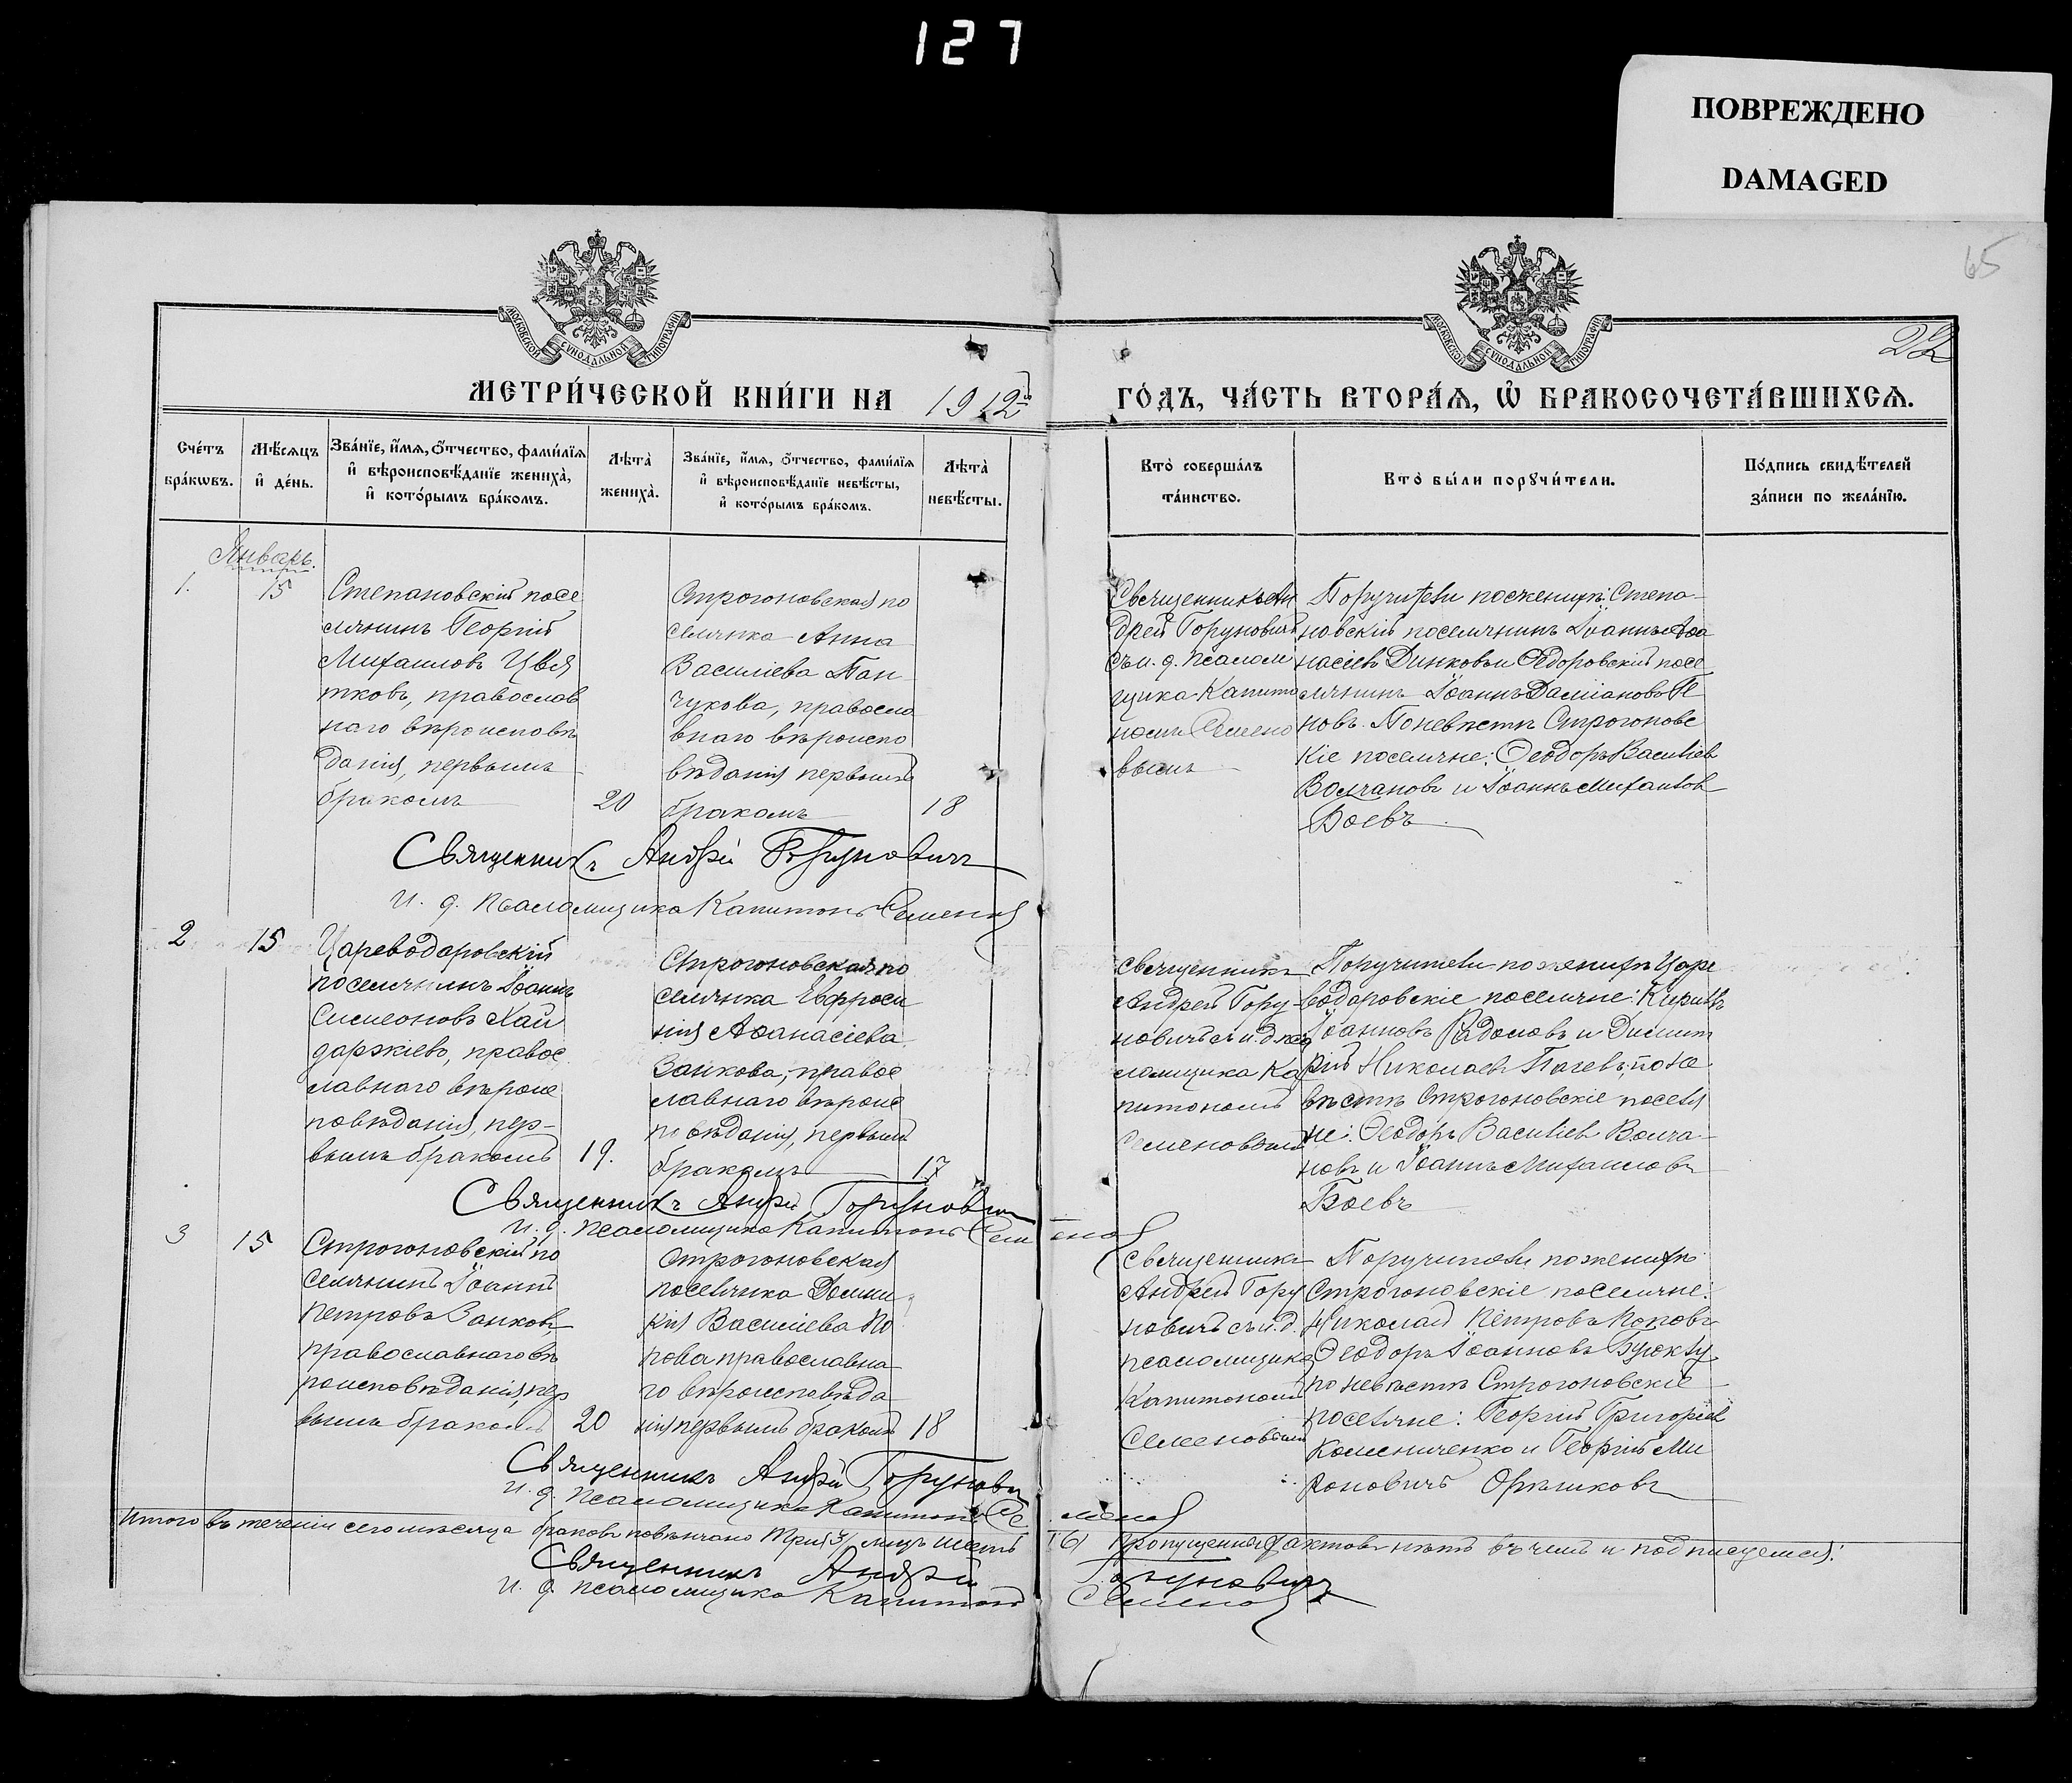 127
ПОВРЕЖДЕНО
DAMAGED
65
22
МОСКОВСКОЙ СУНОДАЛЬНОЙ ТИПОГРАФІИ
МОСКОВСКОЙ СУНОДАЛЬНОЙ ТИПОГРАФІИ
МЕТРИ́ЧЕСКОЙ КНИ́ГИ НА 1912й ГО́ДЪ, ЧА́СТЬ ВТОРА́Я, Ѡ҆ БРАКОСОЧЕТА́ВШИХСѦ.
Сче́тъ
бра́кѡвъ.
Мѣ́сѧцъ
и҆ де́нь.
Зва́нїе, и҆́мѧ, о҆́тчество, фами́лїѧ
и҆ вѣроисповѣ́данїе жениха̀,
и҆ кото́рымъ бра́комъ.
Лѣта̀
жениха̀.
Зва́нїе, и҆́мѧ, о҆́тчество, фами́лїѧ
и҆ вѣроисповѣ́данїе невѣ́сты,
и҆ кото́рымъ бра́комъ.
Лѣта̀
невѣ́сты.
Кто̀ соверша́лъ
та́инство.
Кто̀ бы́ли порꙋчи́тели.
По́дпись свидѣ́телей
за́писи по жела́нїю.
Январь.
1.
15
Степановскій посе
лянинъ Георгій
Михаиловъ Цвя
тковъ, православ
наго вѣроисповѣ
данія, первымъ
бракомъ
20
Строгоновская по
селянка Анна
Василіева Пан
чукова, правосла
внаго вѣроиспо
вѣданія первымъ
бракомъ
18
Священникъ Ан
дрей Горуновичъ
съ и. д. псалом
щика Капито
номъ Семено
вымъ
Поручители по женихѣ: Степа-
новскій поселянинъ Іоаннъ Аѳа
насіевъ Динковъ и Ѳедоровскій посе
лянинъ Іоаннъ Даміановъ Пе
новъ. По невѣстѣ Строгоновс
кіе поселяне: Ѳеодоръ Василіев
Волчановъ и Іоаннъ Михаилов
Боевъ.
Священникъ Андрей Горуновичъ
И. д. псаломщика Капитонъ Семенов
2
15
Цареводаровскій
поселянинъ Іоаннъ
Симеоновъ Хай
даржіевъ, правос
лавнаго вѣроис
повѣданія, пер-
вымъ бракомъ
19.
Строгоновская по
селянка Евфроси
нія Аѳанасіева
Занкова, правос
лавнаго вѣроис
повѣданія, первымъ
бракомъ
17
Священникъ
Андрей Гору-
новичъ съ и. д. пса
ломщика Ка
питономъ
Семеновымъ
Поручители по женихѣ Царе
водаровскіе поселяне: Кириллъ
Іоанновъ Радоловъ и Димит
рій Николаевъ Пачевъ, по не
вѣстѣ Строгоновскіе поселя
не: Ѳеодоръ Василіев Волча-
новъ и Іоаннъ Михаиловъ
Боевъ
Священникъ Андрей Горуновичъ
И. д. псаломщика Капитонъ Семенов
3
15
Строгоновскій по
селянинъ Іоаннъ
Петровъ Занковъ,
православнаго вѣ
роисповѣданія, пер
вымъ бракомъ
20
Строгоновская
поселянка Домни
кія Василіева По
пова православна
го вѣроисповѣда
нія первымъ бракомъ
18
Священникъ
Андрей Гору
новичъ съ и. д.
псаломщика
Капитономъ
Семеновымъ
Поручители по женихѣ
Строгоновскіе поселяне:
Николай Петровъ Поповъ
Ѳеодоръ Іоанновъ Буюклу
по невѣстѣ Строгоновскіе
поселяне: Георгій Григоріев
Колесниченко и Георгій Ми
роновичъ
Священникъ Андрей Горунович
И. д. псаломщика Капитонъ Семенов
Итого въ теченіи сего мѣсяца браковъ повѣнчано три /3/ лицъ шесть /6/ Пропущенныхъ актовъ нѣтъ въ чемъ и подписуемся:
Священникъ Андрей Горуновичъ
И. д. псаломщика Капитонъ Семенов